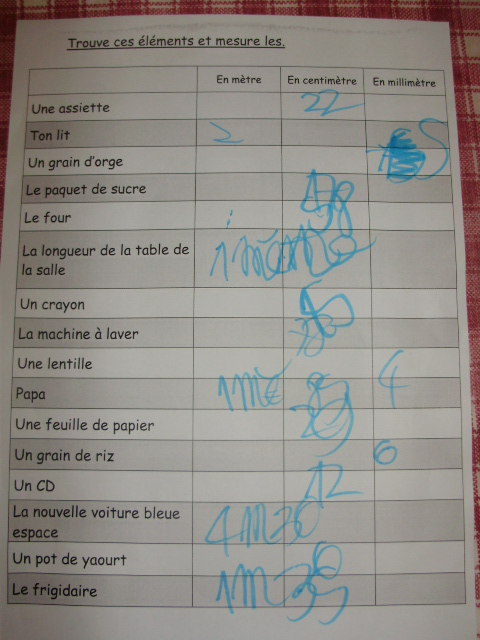 Trouve ces éléments et mesure les.
En mètre En centimètre En millimètre
Une assiette 22
Ton lit 2
Un grain d'orge
Le paquet de sucre
Le four
La longueur de la table de
la salle
Un crayon
La machine à laver
Une lentille 4
Papa
Une feuille de papier
Un grain de riz 6
Un CD 12
La nouvelle voiture bleue
espace 4m30
Un pot de yaourt
Le frigidaire